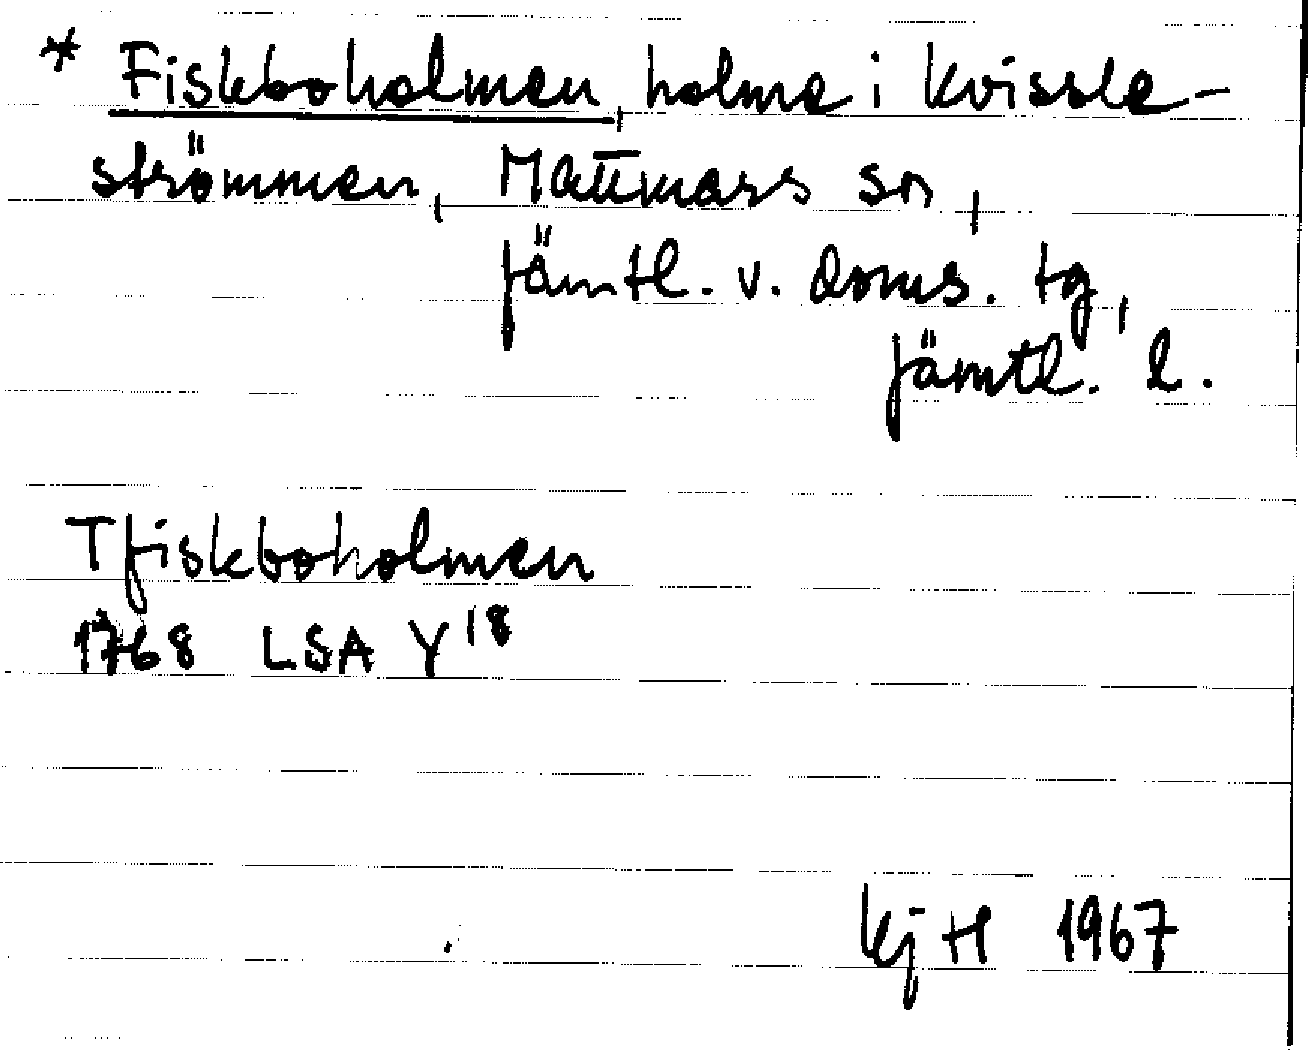 * Fiskboholmen, holme i Kvissle-
strömmen, Mattmars sn,
Jämtl. v. doms. tg,
Jämtl. l.
Tfiskboholmen
1768 LSA Y18
KjH 1967